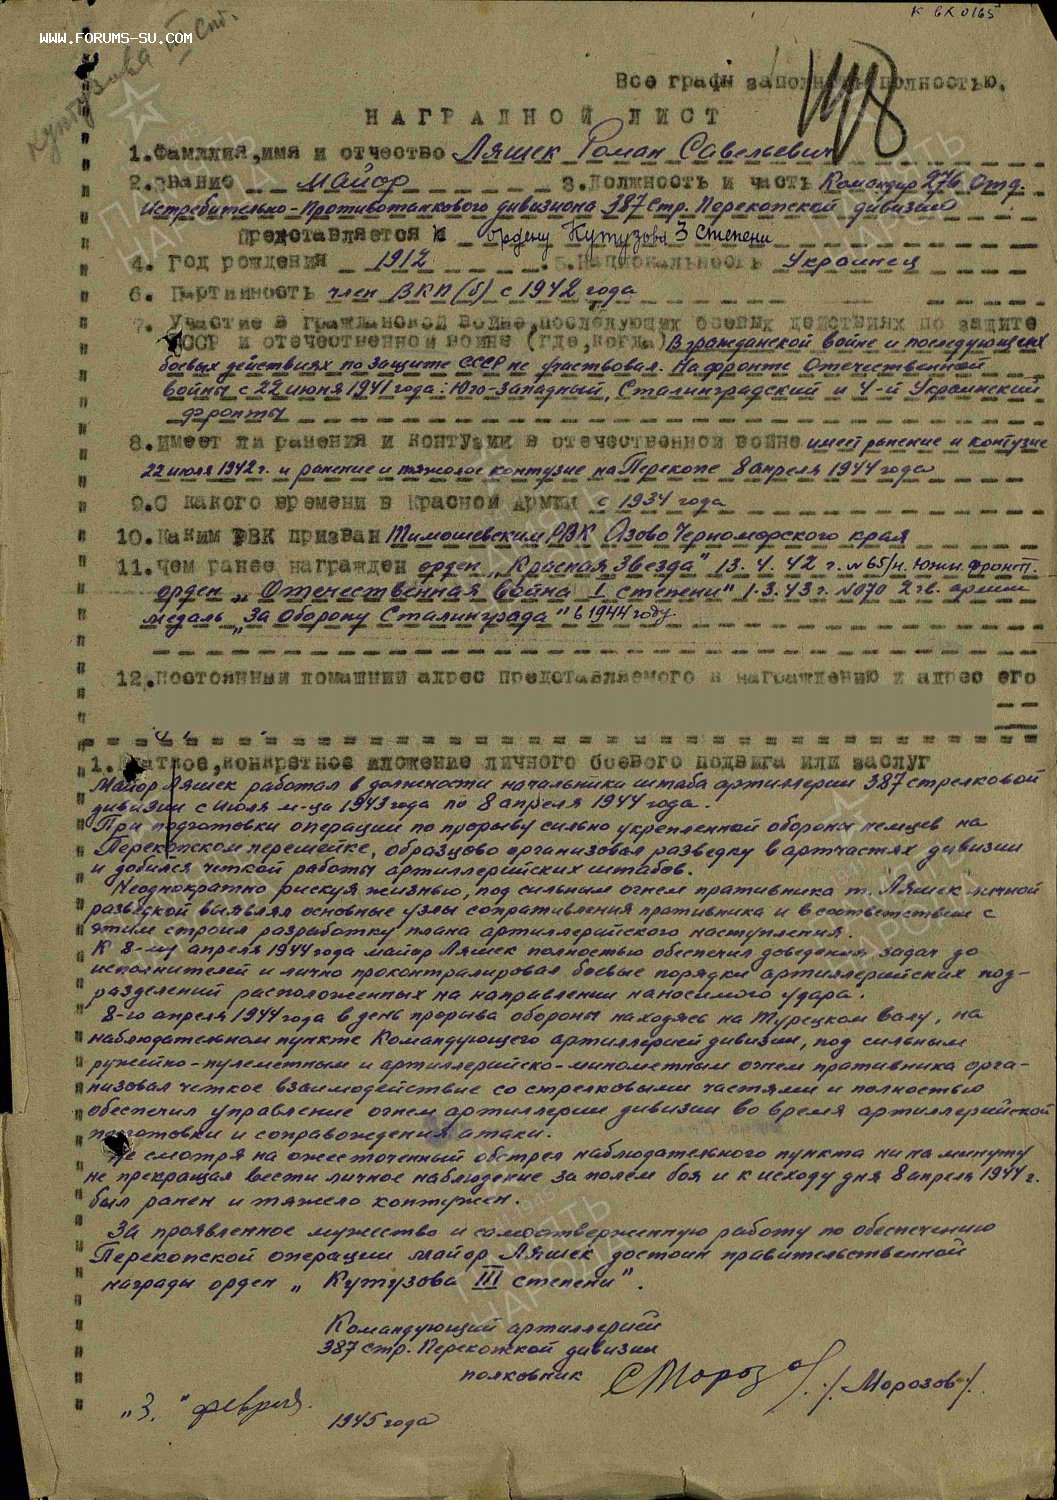 К вх 0165
WWW.FORUMS-SU.COM
Кутузова III Ст.
Все графы заполнять полностью.
НАГРАДНОЙ ЛИСТ
1. Фамилия, имя и отчество Ляшек Роман Савельевич
2. Звание Майор 3. Должность и часть Командир 276 Отд.
Истребительно-Противотанкового дивизиона 387 Стр. Перекопской дивизии
Представляется к ордену Кутузова 3 степени
4. Год рождения 1912 5. Национальность Украинец
6. Партийность член ВКП(б) с 1942 года
7. Участие в гражданской войне, последующих боевых действиях по защите
СССР и отечественной войне (где, когда) В гражданской войне и последующих
боевых действиях по защите СССР не участвовал. На фронте Отечественной
войны с 22 июня 1941 года: Юго-Западный, Сталинградский и 4-й Украинский
фронты
8. Имеет ли ранения и контузии в отечественной войне имеет ранение и контузие
22 июля 1942 г. и ранение и тяжолое контузие на Перекопе 8 апреля 1944 года
9. С какого времени в Красной Армии с 1934 года
10. Каким РВК призван Тимошевским РВК Азово Черноморского края
11. Чем ранее награжден орден "Красная Звезда" 13.4.42 г. №65/н. Южн. Фронт.
орден „Отечественная война I степени" 1.3.43 г. №070 2 гв. армии
медаль „За Оборону Сталинграда" в 1944 году
12. Постоянный домашний адрес представляемого к награждению и адрес его
1. Краткое, конкретное изложение личного боевого подвига или заслуг
Майор Ляшек работал в должности начальника штаба артиллерии 387 стрелковой
дивизии с июля м-ца 1943 года по 8 апреля 1944 года.
При подготовки операции по прорыву сильно укрепленной обороны немцев на
Перекопском перешейке, образцово организовал разведку в артчастях дивизии
и добился четкой работы артиллерийских штабов.
Неоднократно рискуя жизнью, под сильным огнем пративника т. Ляшек личной
разведкой выявлял основные узлы сопративления пративника и в соответствии с
этим строил разработку плана артиллерийского наступления.
К 8-му апреля 1944 года майор Ляшек полностью обеспечил доведения задач до
исполнителей и лично проконтралировал боевые порядки артиллерийских под-
разделений расположенных на направлении наносимого удара.
8-го апреля 1944 года в день прорыва обороны находясь на Турецком валу, на
наблюдательном пункте Командующего артиллерией дивизии, под сильным
ружейно-пулеметным и артиллерийско-минометным огнем пративника орга-
низовал четкое взаимодействие со стрелковыми частями и полностью
обеспечил управление огнем артиллерии дивизии во время артиллерийской
подготовки и соправождения атаки.
Не смотря на ожесточенный обстрел наблюдательного пункта ни на минуту
не прекращая вести личное наблюдение за полем боя и к исходу дня 8 апреля 1944 г.
был ранен и тяжело контужен.
За проявленное мужество и самоотверженную работу по обеспечению
Перекопской операции майор Ляшек достоин правительственной
награды орден „Кутузова III степени".
Командующий артиллерией
387 стр. Перекопской дивизии
полковник СМороз /Морозов/.
„3." февраля.
1945 года